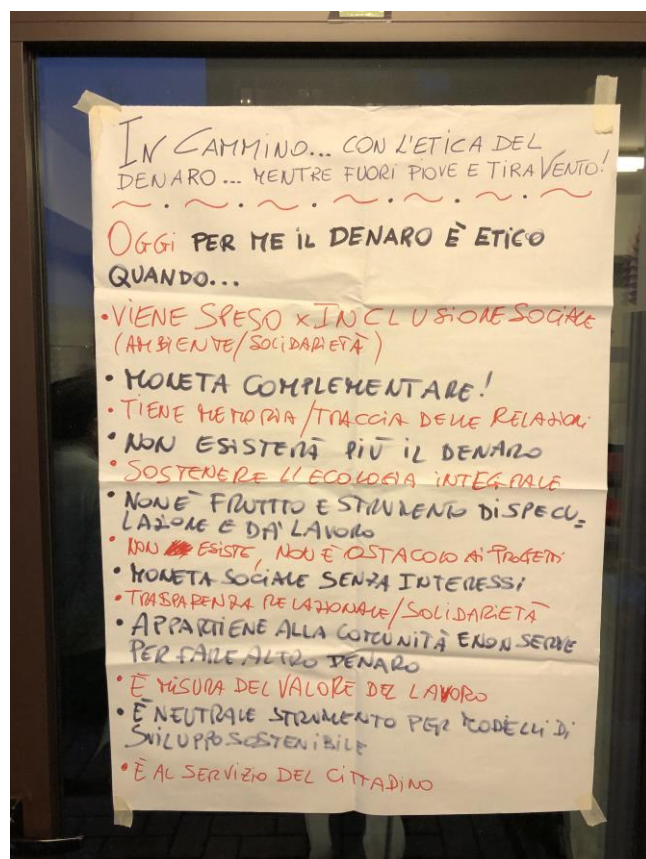 IN CAMMINO... CON L'ETICA DEL
DENARO... MENTRE FUORI PIOVE E TIRA VENTO!
OGGI PER ME IL DENARO È ETICO
QUANDO...
• VIENE SPESO x INCLUSIONE SOCIALE
(AMBIENTE/SOLIDARIETÀ)
• MONETA COMPLEMENTARE!
• TIENE MEMORIA/TRACCIA DELLE RELAZIONI
• NON ESISTERÀ PIÙ IL DENARO
• SOSTENERE L'ECOLOGIA INTEGRALE
• NON È FRUTTO E STRUMENTO DI SPECU=
LAZIONE E DA' LAVORO
• NON ESISTE, NON È OSTACOLO AI PROGETTI
• MONETA SOCIALE SENZA INTERESSI
• TRASPARENZA RELAZIONALE/SOLIDARIETÀ
• APPARTIENE ALLA COMUNITÀ E NON SERVE
PER FARE ALTRO DENARO
• È MISURA DEL VALORE DEL LAVORO
• È NEUTRALE STRUMENTO PER MODELLI DI
SVILUPPO SOSTENIBILE
• È AL SERVIZIO DEL CITTADINO